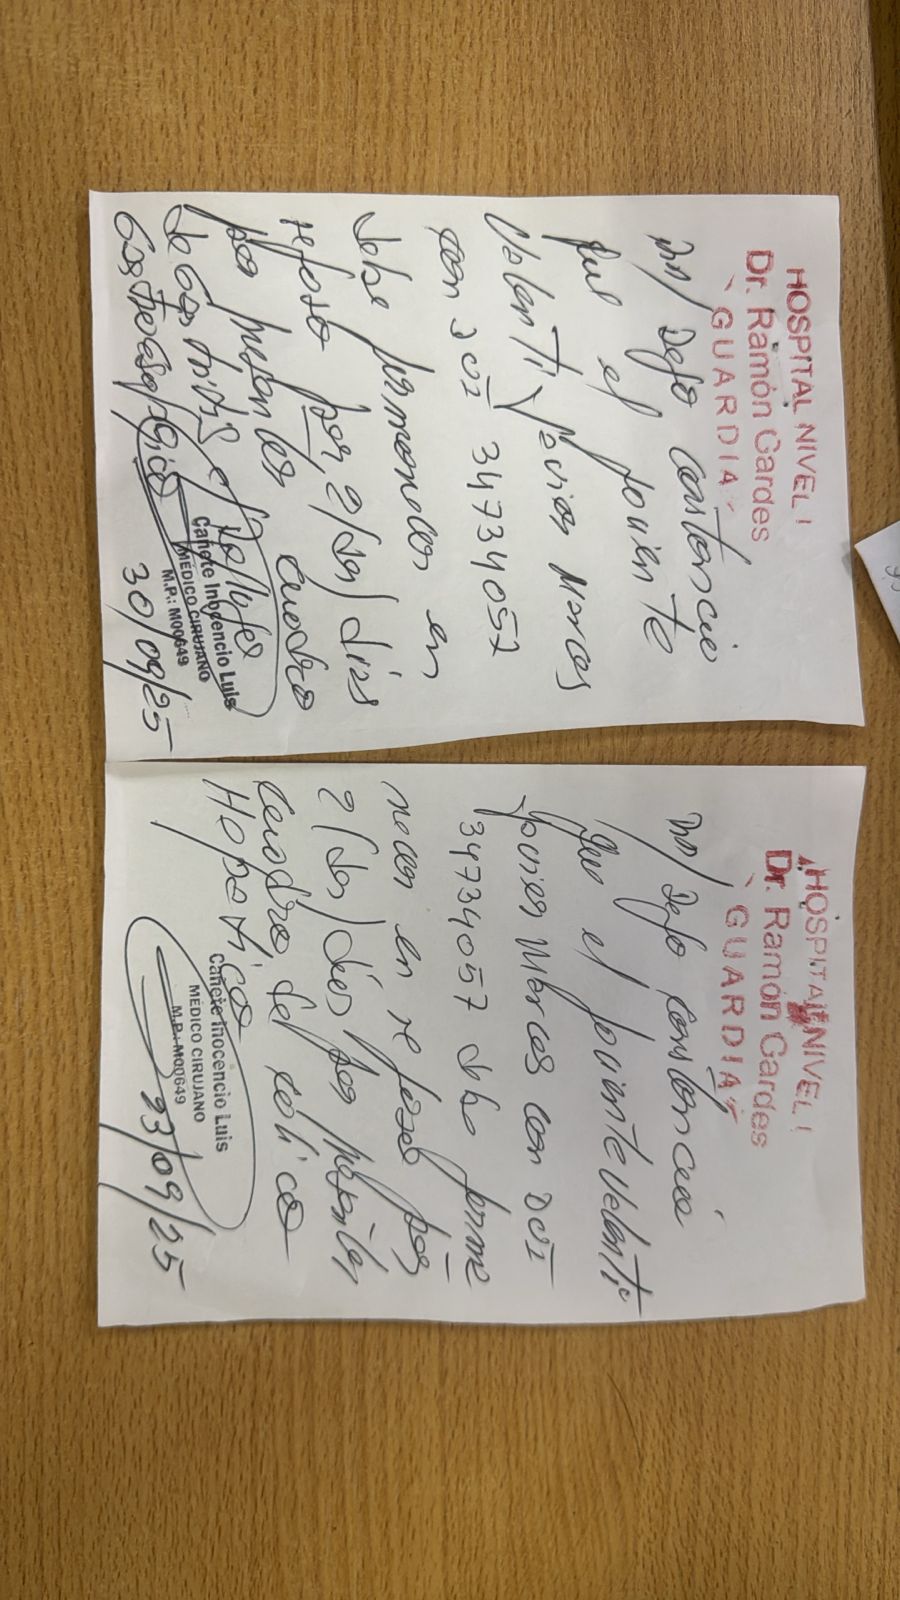 HOSPITAL NIVEL I
Dr. Ramón Gardes
GUARDIA
Dejo constancia
que el paciente
Velanti Javier Marcos
con DNI 34734057
debe permanecer en
reposo por 2/dos/días
por presentar cuadro
de
30/09/25
Canete Inocencio Luis
MEDICO CIRUJANO
M.P.: M00649
HOSPITAL NIVEL I
Dr. Ramón Gardes
GUARDIA
Dejo constancia
que el paciente Velanti
Javier Marcos con DNI
34734057 debe perma
necer en reposo por
2/dos/días por presentar
cuadro de cólico
Hepático
Canete Inocencio Luis
MEDICO CIRUJANO
M.P.: M00649
23/09/25